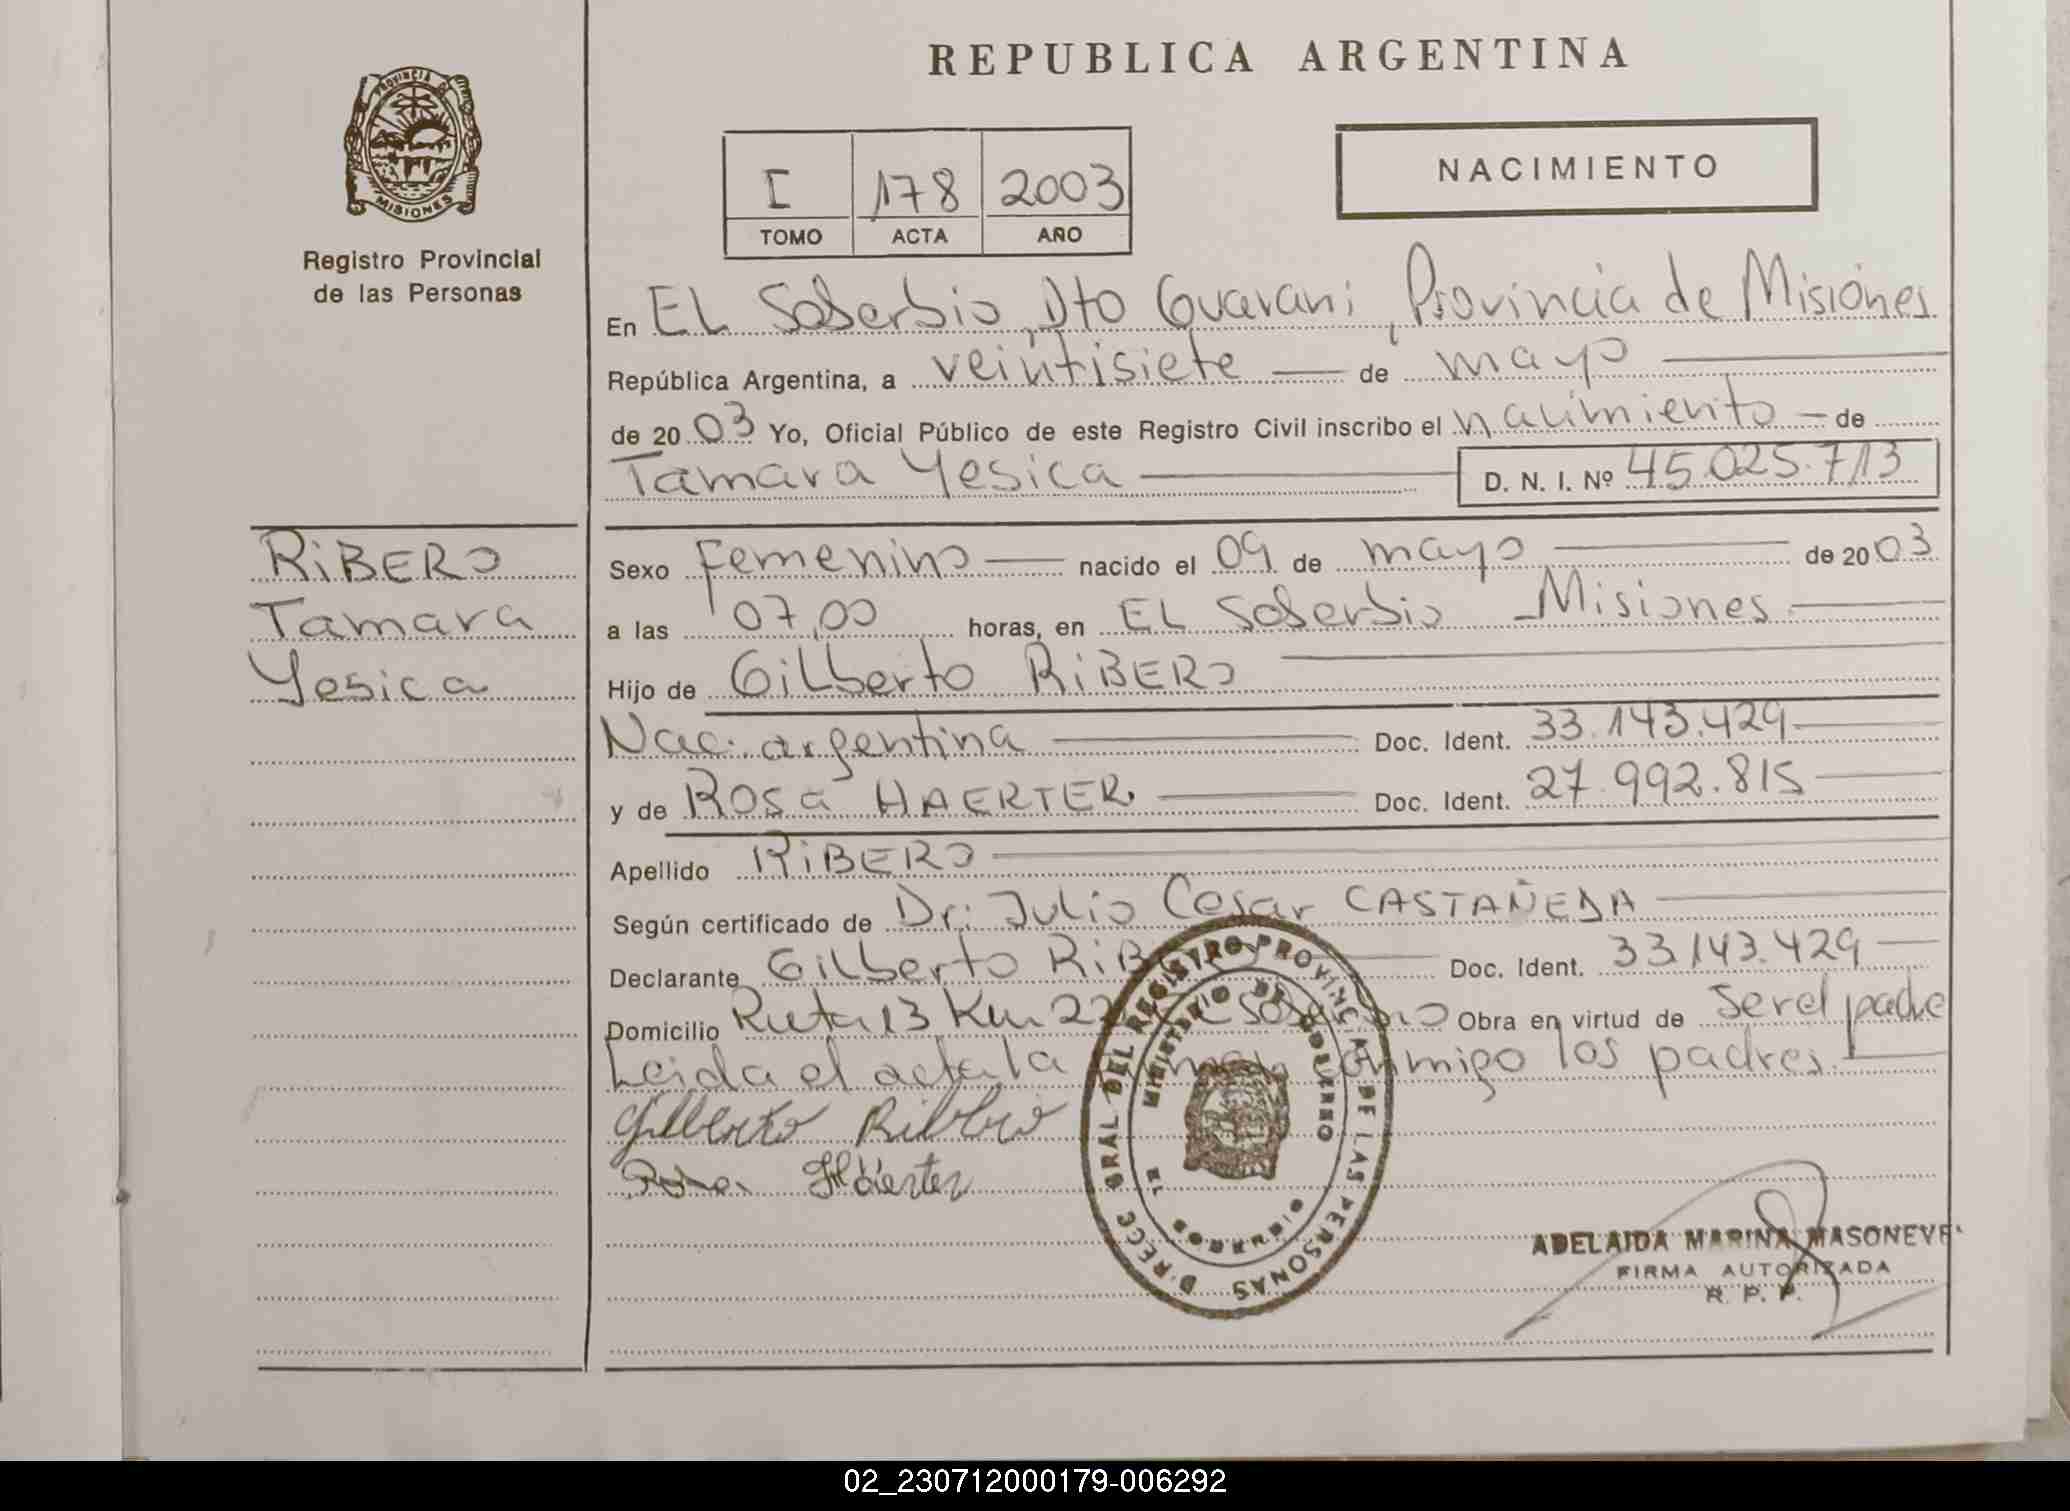 REPUBLICA ARGENTINA
PROVINCIA DE
MISIONES
Registro Provincial
de las Personas
I 178 2003
TOMO ACTA AÑO
NACIMIENTO
En EL Soberbio, Dto Guarani, Provincia de Misiones
República Argentina, a veintisiete de mayo
de 2003 Yo, Oficial Público de este Registro Civil inscribo el nacimiento de
Tamara Yesica D. N. I. Nº 45.025.713
RiBERO
Tamara
Yesica
Sexo Femenino nacido el 09 de mayo de 2003
a las 07,00 horas, en EL Soberbio Misiones
Hijo de Gilberto RiBERO
Nac. argentina Doc. Ident. 33.143.429
y de Rosa HAERTER Doc. Ident. 27.992.815
Apellido RiBERO
Según certificado de Dr. Julio Cesar CASTAÑEDA
Declarante Gilberto RiB Doc. Ident. 33.143.429
Domicilio Ruta 13 Km 22 Soberbio Obra en virtud de ser el padre
Leida el acta la conmigo los padres.
Gilberto Ribero
Rosa Haerter
DIRECC GRAL DEL REGISTRO PROVINCIAL DE LAS PERSONAS
MINISTERIO DE GOBIERNO
ADELAIDA MARINA MASONEVE
FIRMA AUTORIZADA
R. P. P.
02_230712000179-006292